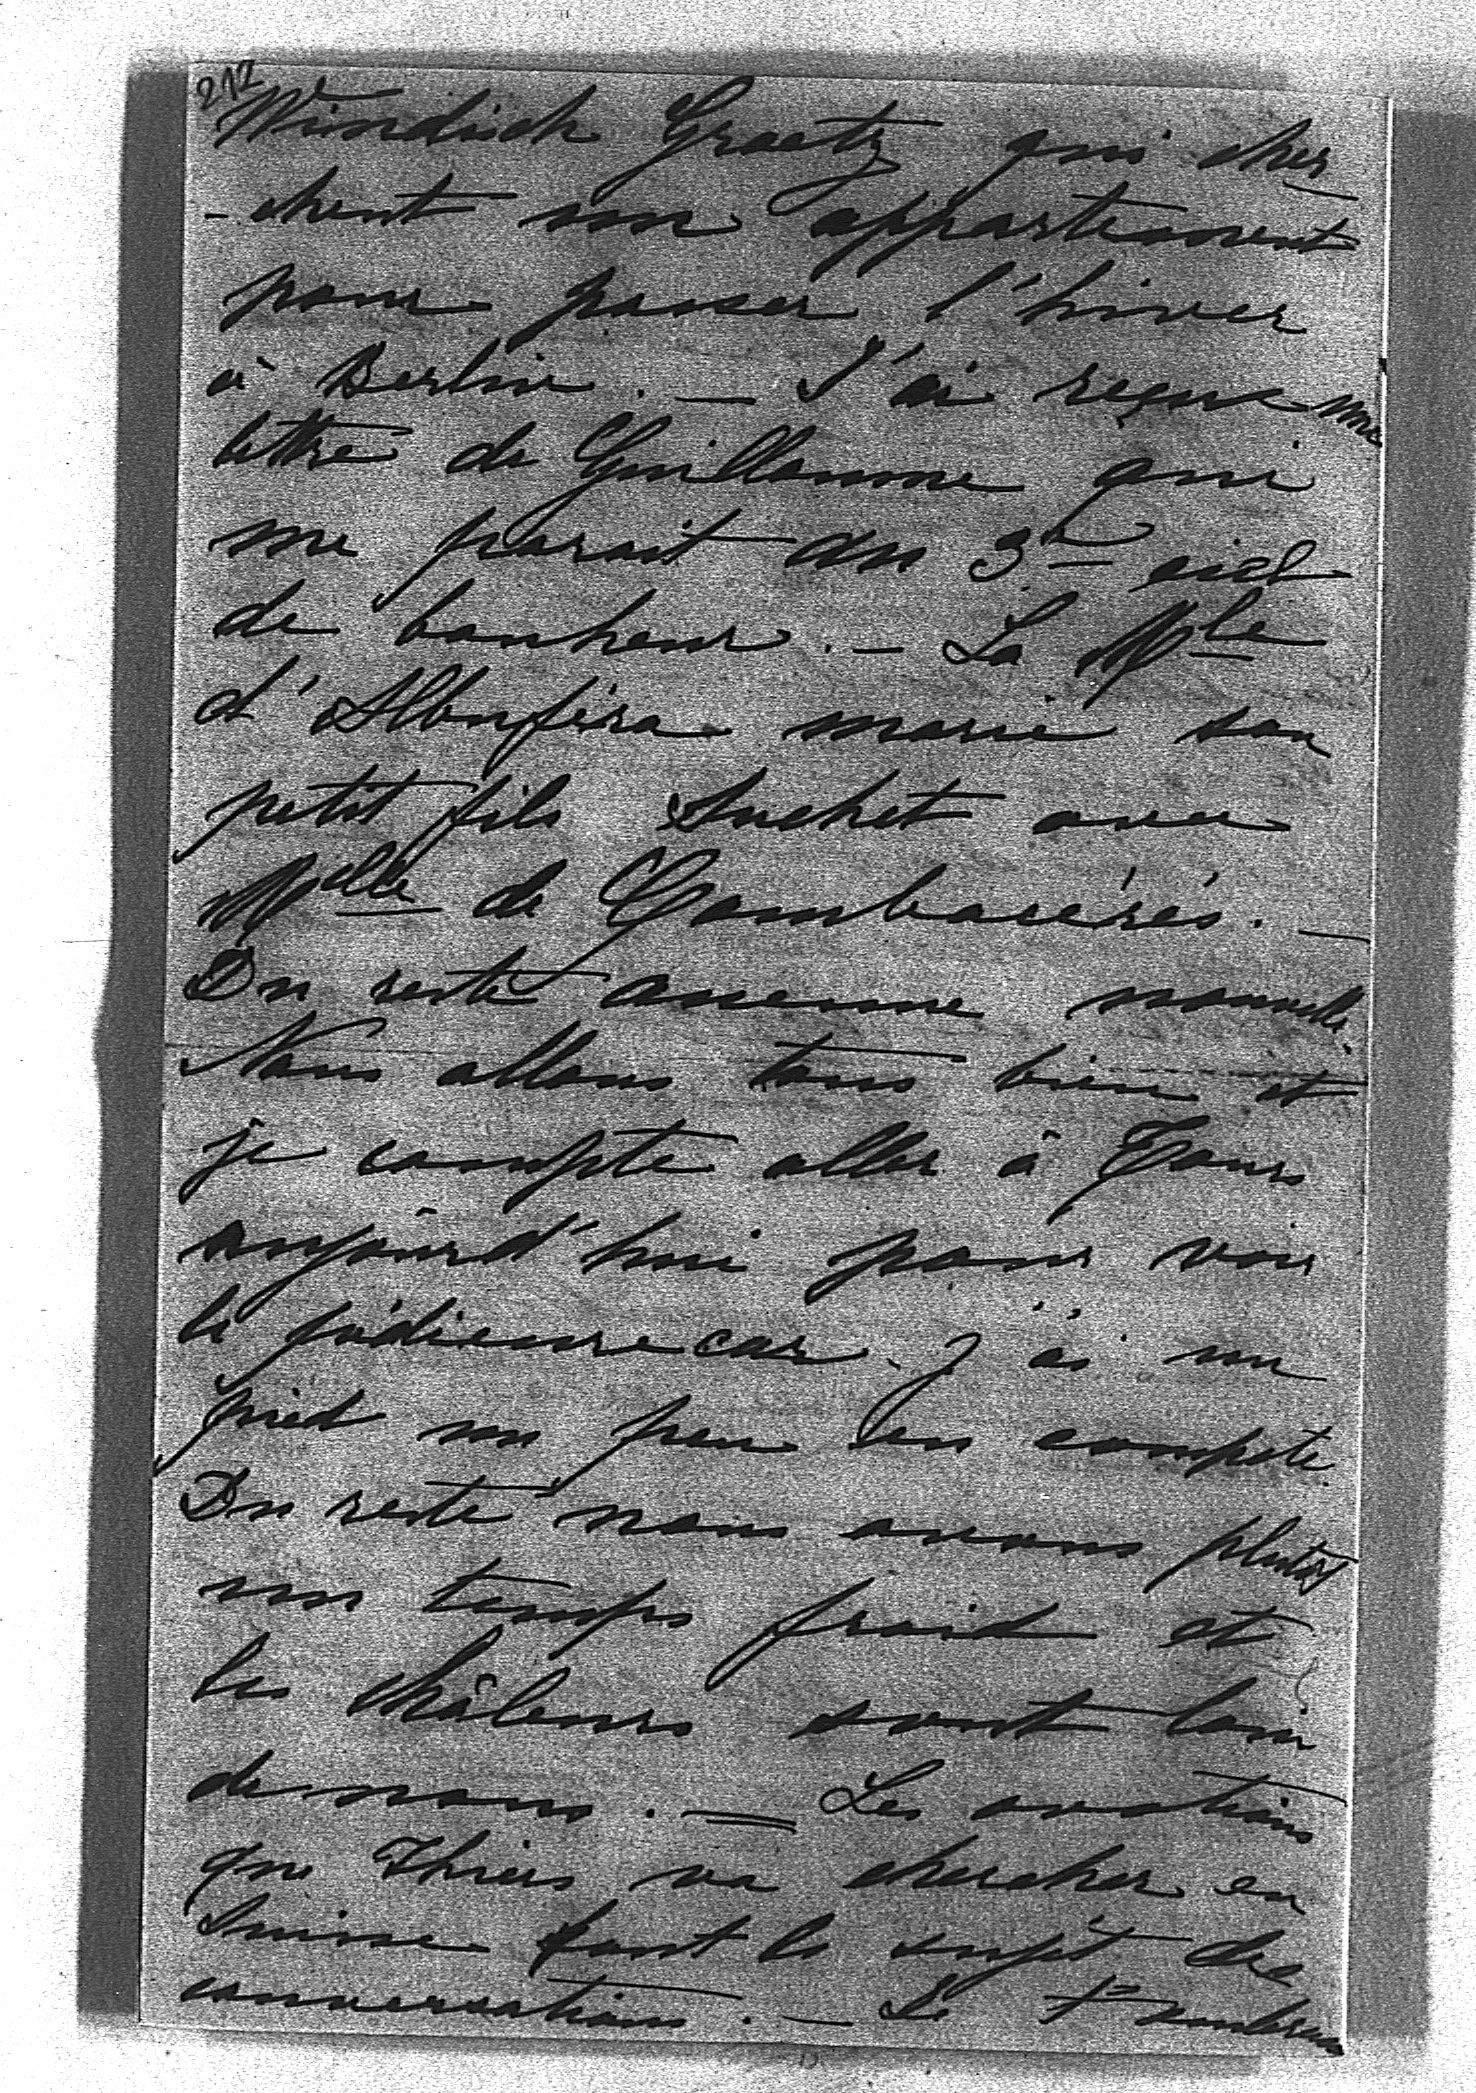 212
Windisch Graetz qui cher
-chent un appartement
pour passer l'hiver
à Berlin. — J'ai reçue une
lettre de Guillaume qui
me parait au 3me ciel
de bonheur. — La Mle
d'Albuféra marie son
petit fils Suchet avec
Melle de Cambacérès. —
Du reste aucune nouvelle.
Nous allons tous bien et
je compte aller à Tours
aujourd'hui pour voir
le pédicure car j'ai un
pied un peu en compote.
Du reste nous avons plutôt
un temps froid et
les châleurs sont loin
de nous. — Les ovations
que Thiers va chercher en
Suisse font le sujet de
conversations. — Le